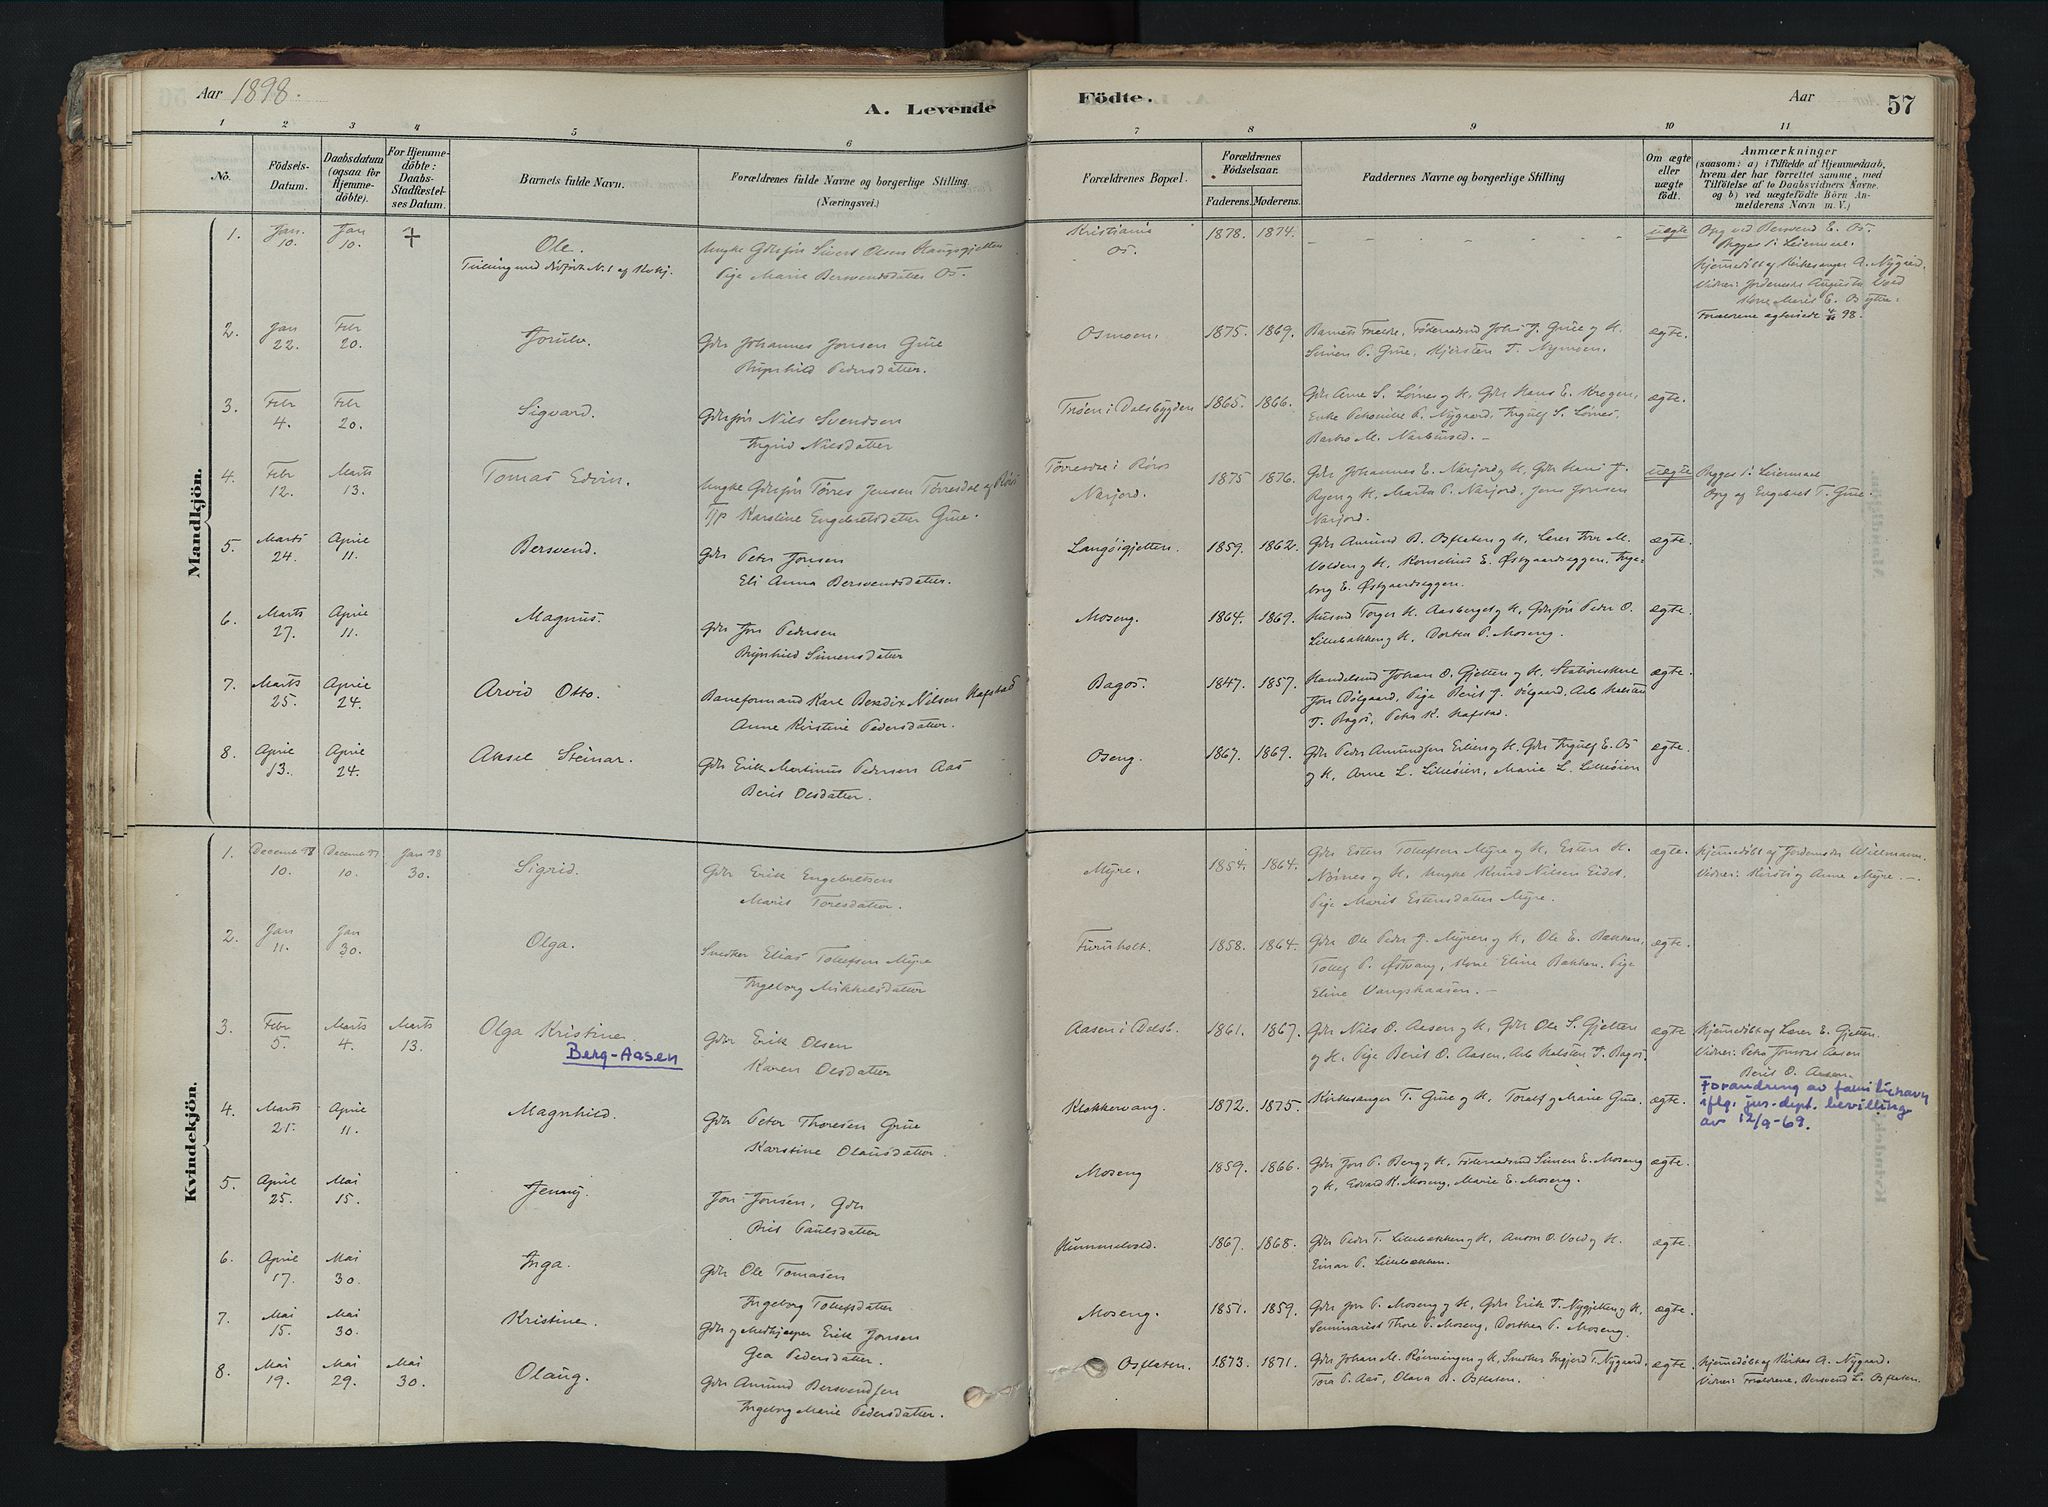 Aar 1898.
A. Levende
Födte.
Aar
57
1 2 3 4 5 6 7 8 9 10 11
No.
Födsels-Datum.
Daabsdatum (ogsaa for Hjemme-döbte).
For Hjemme-döbte: Daabs-Stadfæstel-ses Datum.
Barnets fulde Navn.
Forældrenes fulde Navne og borgerlige Stilling.
(Næringsvei.)
Forældrenes Bopæl.
Forældrenes Födselsaar.
Faderens. Moderens.
Faddernes Navne og borgerlige Stilling
Om ægte eller uægte födt.
Anmærkninger
(saasom: a) i Tilfælde af Hjemmedaab,
hvem der har forrettet samme, med
Tilföielse af to Daabsvidners Navne.
og b) ved uægtefödte Börn An-
melderens Navn m. V.)
Mandkjön.
1. Jan. 10. Jan 10. + Ole.
Ungke Gdrsøn Sivert Olsen
Pige Marie Bersvendsdatter Os.
Kristiania
Os.
1878. 1874. uægte
Opg ved Bersvend E. Os.
Begges 1ste Leiermaal.
Hjemmedøbt af Kirkesanger A. Nygaard.
Vidner: Jordemoder Augusta Vold
Kone Marit E.
Forældrene ægteviede 98.
2. Jan 22. Febr 20.
Gdr Johannes Jonsen Grue
Brynhild Pedersdatter.
Osmoen. 1875. 1869.
Simen P. Grue, Kjersten T. Nymoen.
ægte.
3. Febr 4. Febr 20. Sigvard.
Gdrsøn Nils Svendsen
Ingrid Nilsdatter
Trøen i Dalsbygden 1865. 1866.
Gdr Arne S. Lørnes og K, Gdr Hans E. Krogen,
Enke P. Nygaard, Ingulf S. Lørnes,
ægte.
4. Febr 12. Marts 13. Tomas Edvin.
Ungke Gdrsøn Tørres Jensen Tørresdal af Røros
T/p Karstine Engebretsdatter Grue.
Tørresdal i Røros
Narjord.
1875 1876.
Gdr Johannes E. Narjord og K, Gdr Hans J.
Ryen og K, Marta P. Narjord, Jens Jonsen
Narjord.
uægte
Begges 1ste Leiermaal
Opg af Engebret T. Grue.
5. Marts 24. April 11. Bersvend.
Gdr Peter Jonsen
Eli Anna Bersvendsdatter.
Langøigjelten. 1859. 1862.
Gdr Amund B. Osflaten og K, Lærer Thor M.
Volden og K, Kornelius E. Østgaardseggen, Inge-
borg E. Østgaardseggen.
ægte.
6. Marts 27. April 11. Magnus.
Gdr Jon Pedersen
Brynhild Simensdatter
Moseng. 1864. 1869.
Husmd Torger K. Aasberget og K, Gdrsøn Peder O.
Lillebakken og K, Dortea P. Moseng.
ægte.
7. Marts 25. April 24. Arvid Otto.
Baneformand Karl Bendix Nilsen Hafstad
Anne Kirstine Pedersdatter.
Bagos. 1847. 1857.
Handelsmd Johan O. Gjelten og K, Stationskar
Jon Dølgaard, Pige Berit J. Dølgaard, Arb Halsten
T. Bagos, Peter K. Hafstad.
ægte
8. April 13. April 24. Aksel Steinar.
Gdr Erik Martinus Pedersen Aas
Berit Olsdatter.
Oseng. 1867. 1869.
Gdr Peder Amundsen Eilien og K, Gdr Ingulf E. Os
og K, Arne L. Lilleøien, Marie L. Lilleøien
ægte.
Kvindekjön.
1. Decemb 98 10. Decemb 97 10. Jan 98 30. Sigrid.
Gdr Erik Engebretsen
Marit Toresdatter.
Myre. 1854. 1864.
Gdr Esten Tollefsen Myre og K, Esten K.
Nørnes og K, Ungke Knud Nilsen Eidet,
Pige Marit Estensdatter Myre.
ægte.
Hjemmedøbt af Jordemoder Willmann.
Vidner: Kirsti og Anne Myre.
2. Jan 11. Jan 30. Olga.
Snedker Elias Tollefsen Myre
Ingeborg Mikkelsdatter
Furuholt. 1858. 1864.
Gdr Ole Peder J. Myren og K, Ole E. Bakken,
Tollef P. Østvang, Kone Eline Bakken, Pige
Eline Vangskaasen.
ægte.
3. Febr 5. Marts 4. Marts 13. Olga Kristine
Berg-Aasen
Gdr Erik Olsen
Karen Olsdatter
Aasen i Dalsb. 1861. 1867.
Gdr Nils O. Aasen og K, Gdr Ole S. Gjelten
og K, Pige Berit O. Aasen, Arb Halsten T. Bagos.
ægte
Hjemmedøbt af Lærer E. Gjelten.
Vidner: Peter Jonsen Aasen
Berit O. Aasen.
Forandring av familienavn
iflg. jus.-dept. bevilling
av 12/9-69.
4. Marts 21. April 11. Magnhild.
Gdr Peter Thoresen Grue
Karstine Olausdatter.
Klokkervang. 1872. 1875.
Kirkesanger T. Grue og K, Toralf og Marie Grue.
ægte.
5. April 25. Mai 15. Jenny.
Jon Jonsen, Gdr
Brit Paulsdatter
Moseng 1859. 1866.
Gdr Jon P. Berg og K, Føderaadsmd Simen E. Moseng
og K, Edvard K. Moseng, Marie E. Moseng.
ægte.
6. April 17. Mai 30. Inga.
Gdr Ole Tomasen
Ingeborg Tollefsdatter
Hummelvold. 1867. 1868.
Gdr Peder T. Lillebakken og K, Anton O. Vold og K,
Einar P. Lillebakken.
ægte.
7. Mai 15. Mai 30. Kristine.
Gdr og Medhjælper Erik Jonsen
Gea Pedersdatter.
Moseng. 1851. 1859.
Gdr Jon P. Moseng og K, Gdr Erik T. Nygjelten og K,
Seminarist Thore P. Moseng, Dorthea P. Moseng.
ægte
8. Mai 19. Mai 29. Mai 30. Olaug.
Gdr Amund Bersvendsen
Ingeborg Marie Pedersdatter.
Osflaten. 1873. 1871.
Gdr Johan M. Rønningen og K, Snedker Ingjerd T. Nygaard.
Tora P. Aas, Olava B. Osflaten.
ægte.
Hjemmedøbt af Kirkes A. Nygaard.
Vidner: Forældrene, Bersvend L. Osflaten.